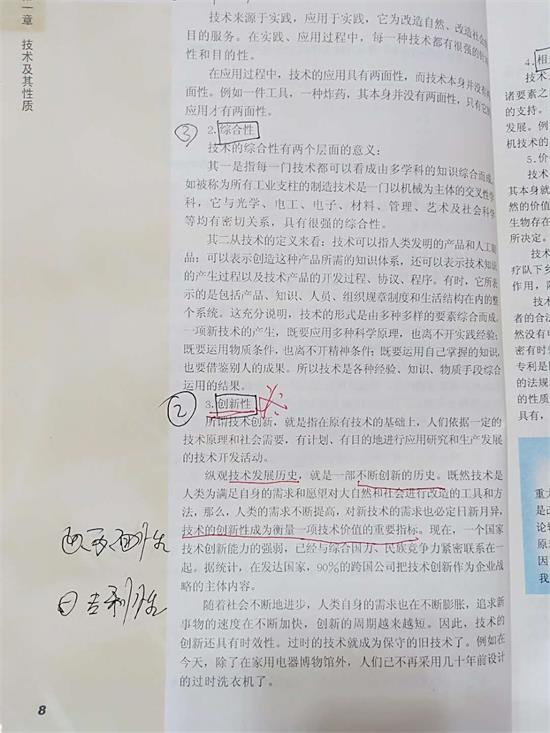 第一章 技术及其性质
技术来源于实践，应用于实践，它为改造自然、改造社会
目的服务。在实践、应用过程中，每一种技术都有很强的
性和目的性。
在应用过程中，技术的应用具有两面性，而技术本身并没有两
面性。例如一件工具，一种炸药，其本身并没有两面性，只有它
应用才有两面性。
③ 2.综合性
技术的综合性有两个层面的意义：
其一是指每一门技术都可以看成由多学科的知识综合而成，
如被称为所有工业支柱的制造技术是一门以机械为主体的交叉性学
科，它与光学、电工、电子、材料、管理、艺术及社会科学
等均有密切关系，具有很强的综合性。
其二从技术的定义来看：技术可以指人类发明的产品和人工
品；可以表示创造这种产品所需的知识体系，还可以表示技术知识
的产生过程以及技术产品的开发过程、协议、程序。有时，它所表
示的是包括产品、知识、人员、组织规章制度和生活结构在内的整
个系统。这充分说明，技术的形式是由多种多样的要素综合而成。
一项新技术的产生，既要应用多种科学原理，也离不开实践经验；
既要运用物质条件，也离不开精神条件；既要运用自己掌握的知识，
也要借鉴别人的成果。所以技术是各种经验、知识、物质手段综合
运用的结果。
② 3.创新性
所谓技术创新，就是指在原有技术的基础上，人们依据一定的
技术原理和社会需要，有计划、有目的地进行应用研究和生产发展
的技术开发活动。
纵观技术发展历史，就是一部不断创新的历史。既然技术是
人类为满足自身的需求和愿望对大自然和社会进行改造的工具和方
法，那么，人类的需求不断提高，对新技术的需求也必定日新月异，
技术的创新性成为衡量一项技术价值的重要指标。现在，一个国家
技术创新能力的强弱，已经与综合国力、民族竞争力紧密联系在一
起。据统计，在发达国家，90%的跨国公司把技术创新作为企业战
略的主体内容。
随着社会不断地进步，人类自身的需求也在不断膨胀，追求新
事物的速度在不断加快，创新的周期越来越短。因此，技术的
创新还具有时效性。过时的技术就成为保守的旧技术了。例如在
今天，除了在家用电器博物馆外，人们已不再采用几十年前设计
的过时洗衣机了。
④两面性
⑤专利性
8
4.相
技术
诸要素之
的支持。
发展。例
机技术的
5.价
技术
其本身就
然的价值
生物存在
所决定。
技术
疗队下乡
作用，
者的合法
然没有申
密有时
专利是
的法规
的性质
重大
是改
论
原理
因
我